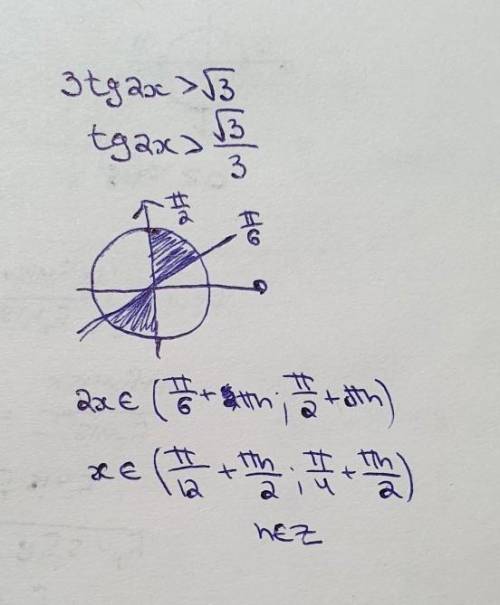 3tg2x>√3
tg2x>√3/3
π/2
π/6
0
2x∈(π/6+πn;π/2+πn)
x∈(π/12+πn/2;π/4+πn/2)
n∈Z